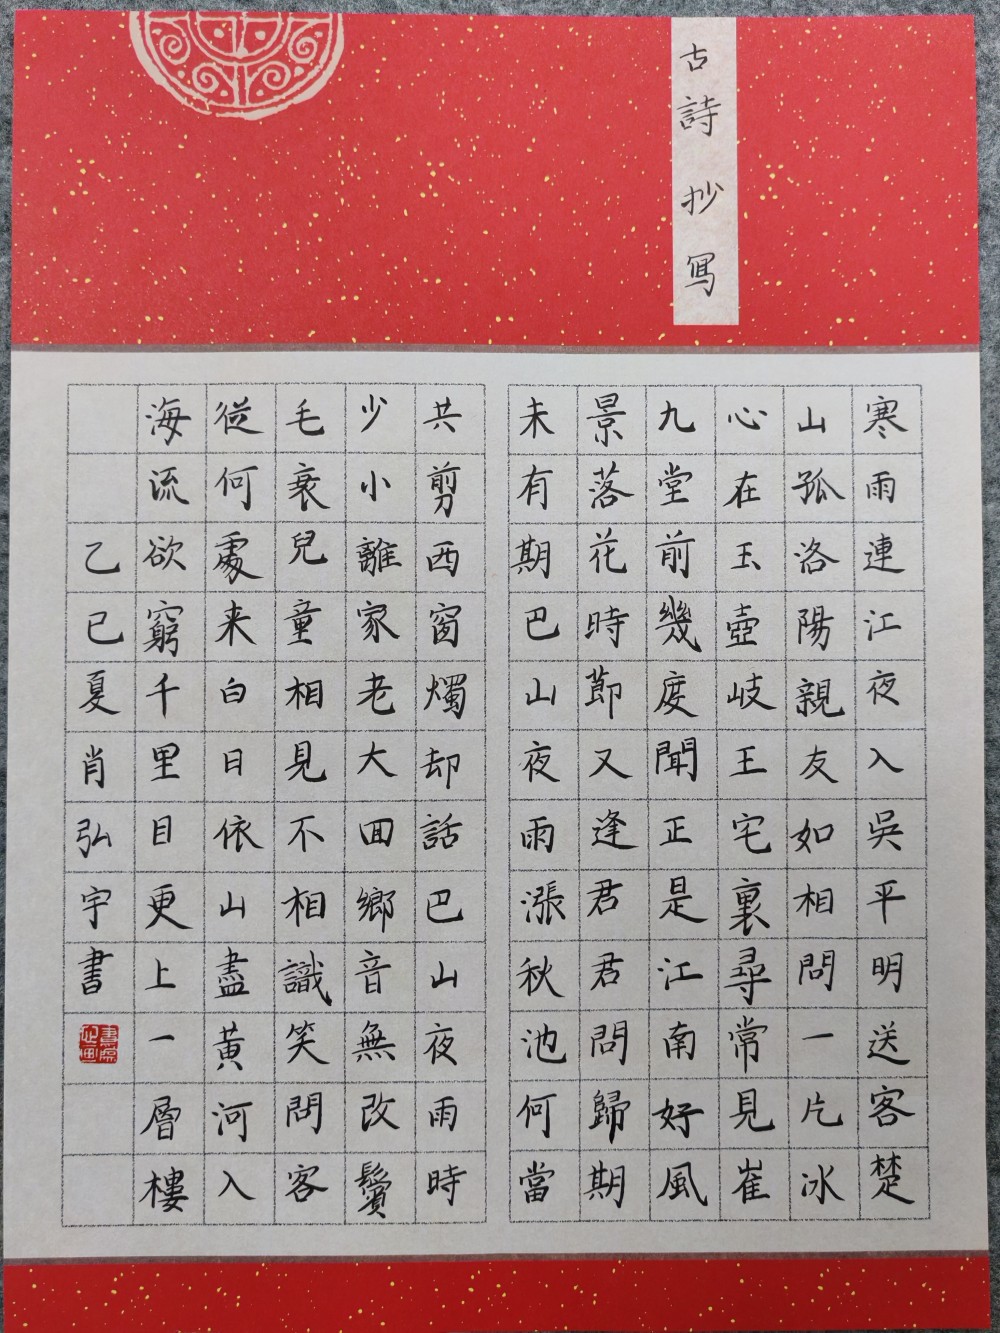 古詩抄寫
寒雨連江夜入吳平明送客楚
山孤洛陽親友如相問一片冰
心在玉壺岐王宅裏尋常見崔
九堂前幾度聞正是江南好風
景落花時節又逢君君問歸期
未有期巴山夜雨漲秋池何當
共剪西窗燭却話巴山夜雨時
少小離家老大回鄉音無改鬢
毛衰兒童相見不相識笑問客
從何處来白日依山盡黃河入
海流欲窮千里目更上一層樓
乙巳夏肖弘宇書